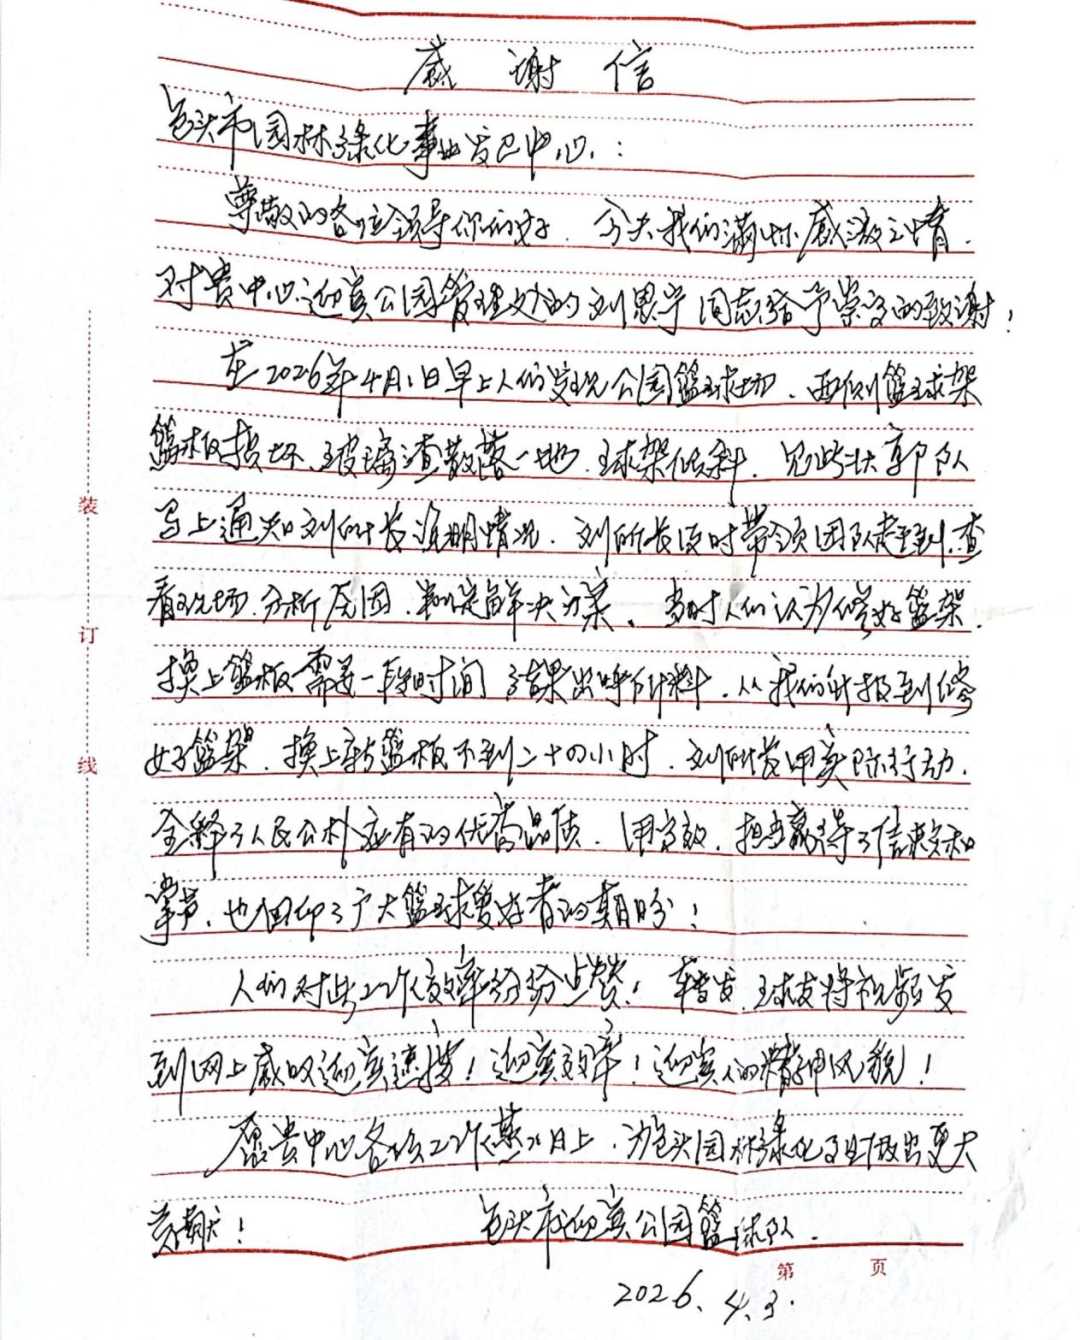 感谢信
包头市园林绿化事业发展中心:
尊敬的各位领导你们好. 今天我们满怀感激之情.
对贵中心迎宾公园管理处的刘思宇同志给予崇高的致谢!
在2026年4月1日早上人们发现公园篮球场、西侧篮球架
篮板损坏.玻璃渣散落一地.球架倾斜.见此状郭队
马上通知刘所长说明情况.刘所长及时带领团队赶到.查
看现场.分析原因.制定解决方案、当时人们认为修好篮架.
换上篮板需要一段时间 结果出呼所料.从我们汇报到修
好篮架.换上新篮板不到二十四小时.刘所长用实际行动.
全释了人民公朴应有的优秀品质.用高效.担当赢得了信赖和
掌声.也回仰了广大篮球爱好者的期盼!
人们对此工作效率纷纷点赞! 转发.球友将视频发
到网上感叹迎宾速度!迎宾效率!迎宾人的精神风貌!
愿贵中心各项工作蒸蒸日上.为包头园林绿化事业做出更大
贡献! 包头市迎宾公园篮球队.
2026.4.3.
装
订
线
第 页